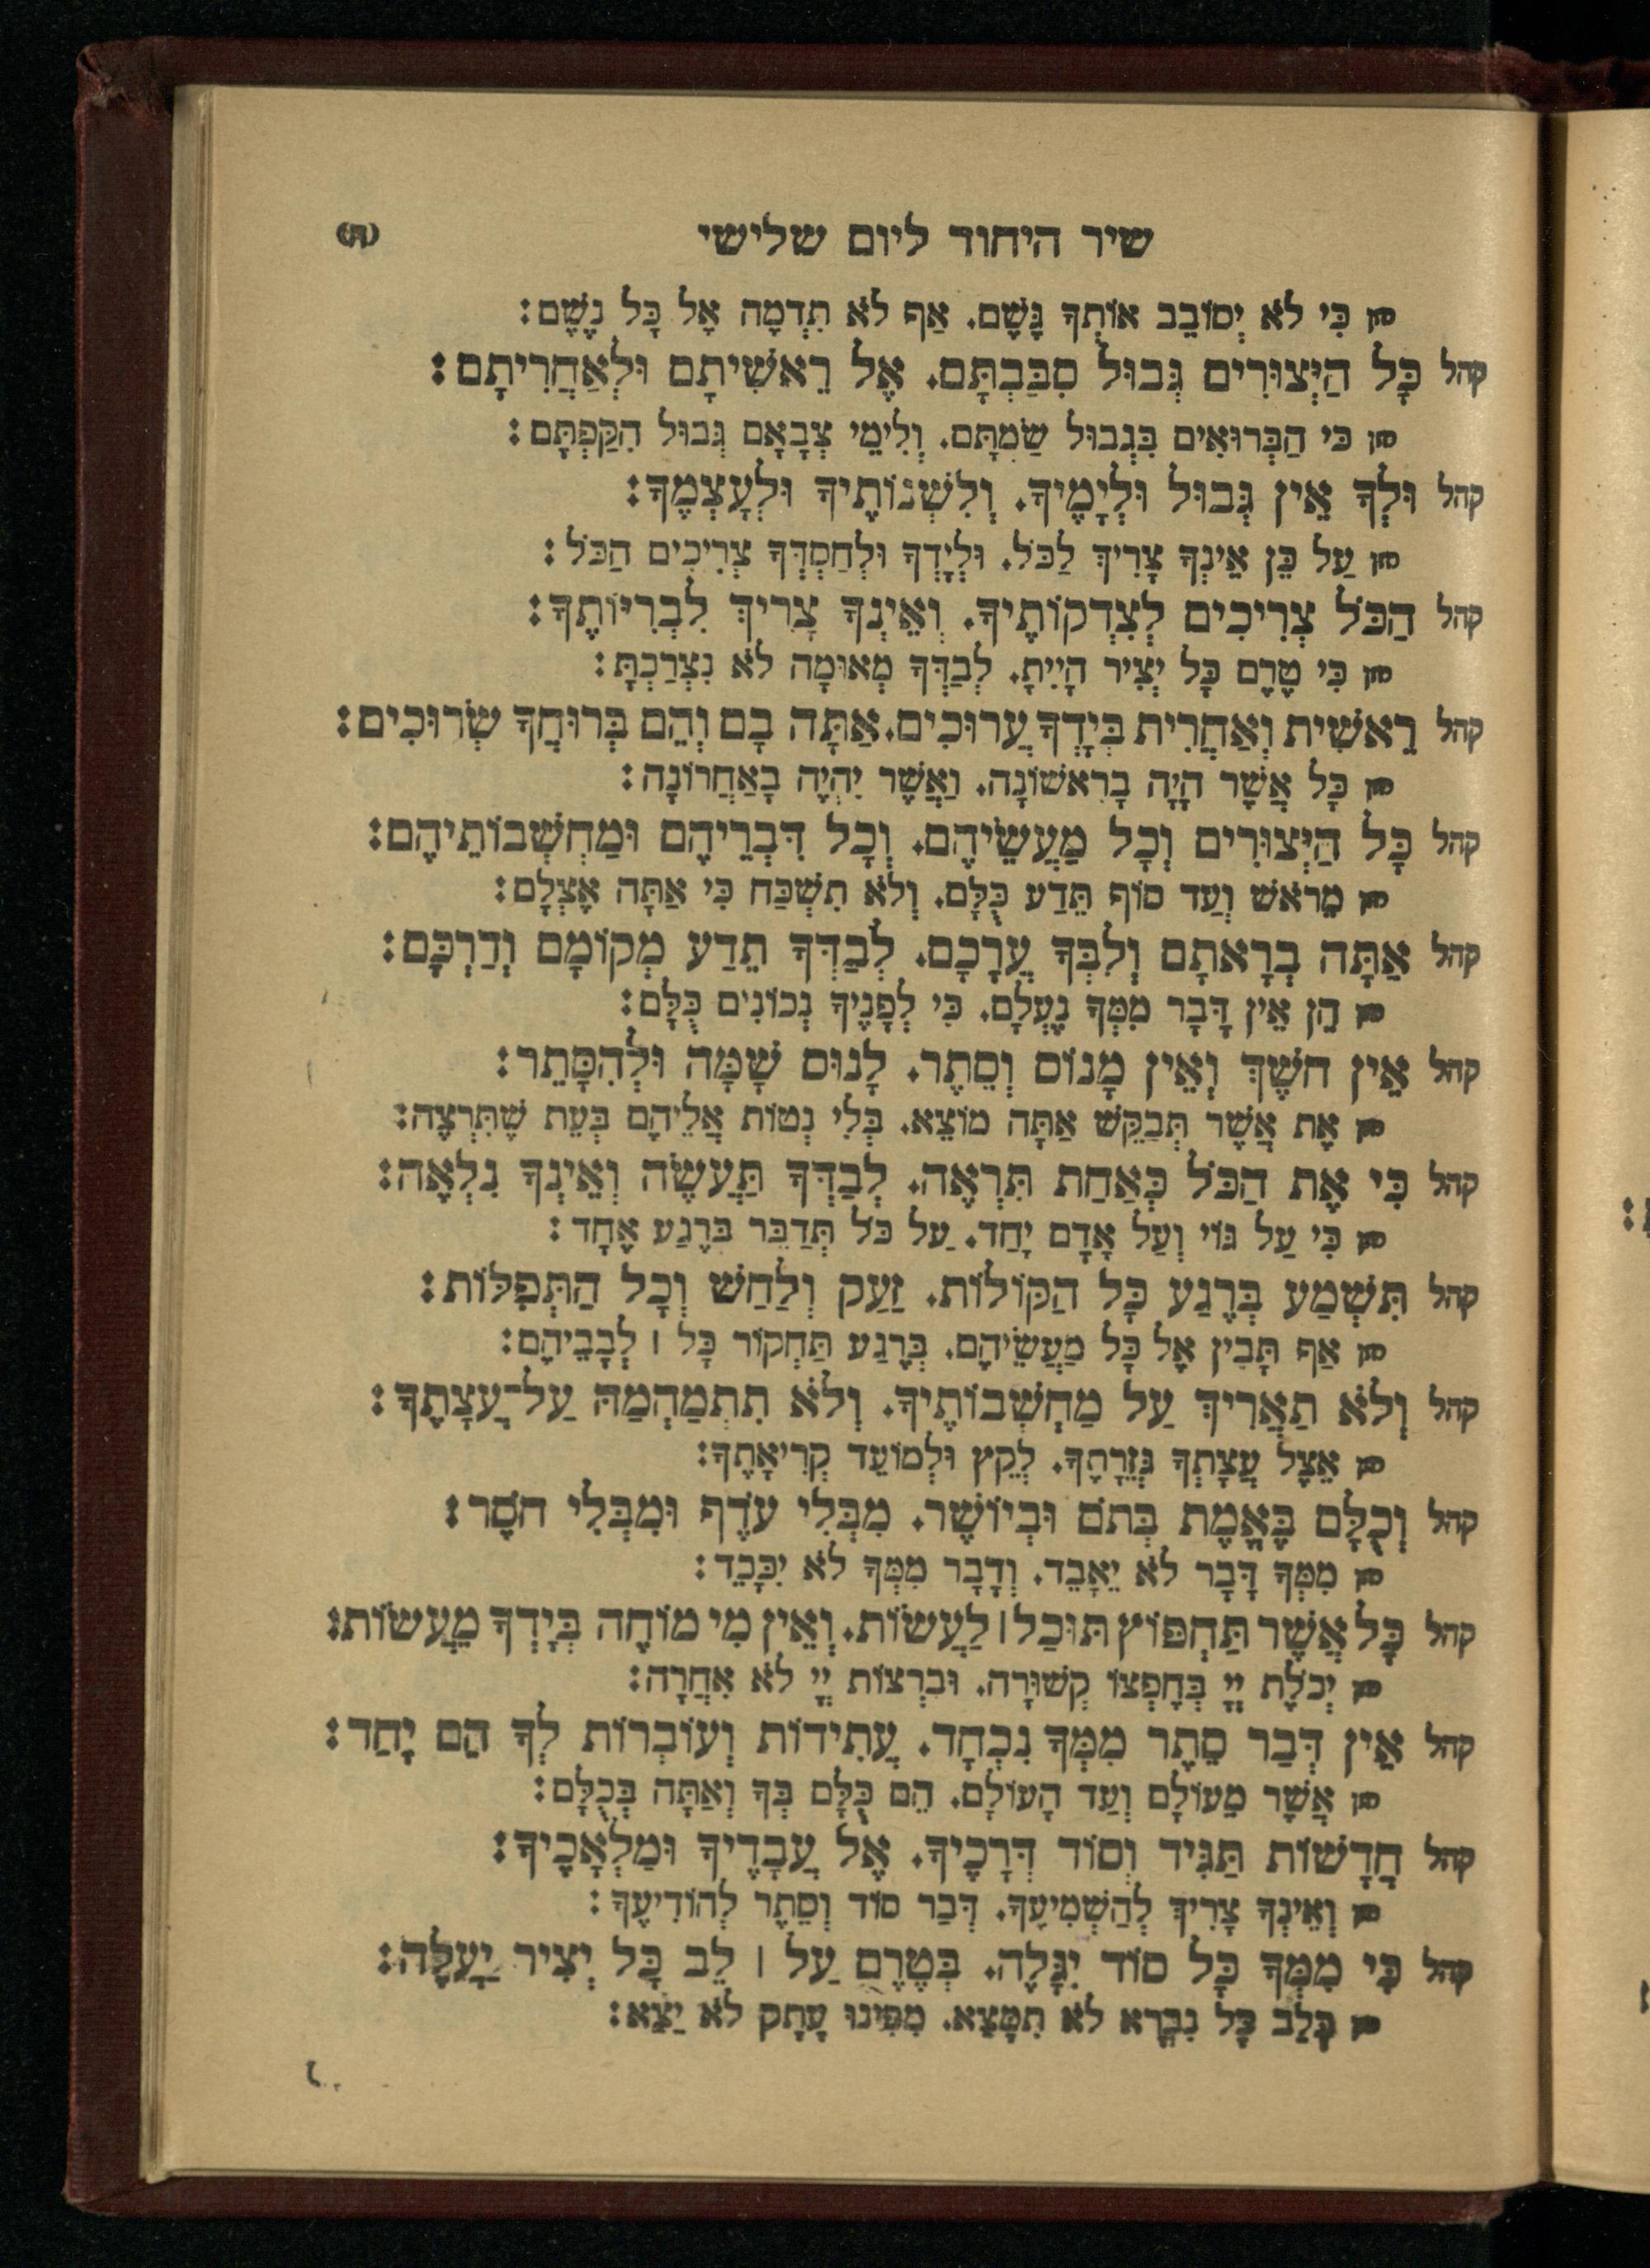 שיר היחוד ליום שלישי (ח)
חזן כִּי לֹא יְסוֹבֵב אוֹתְךָ גָּשֶׁם. אַף לֹא תִדְמֶה אֶל כָּל נֶשֶׁם:
קהל כָּל הַיְּצוּרִים גְּבוּל סִבַּבְתָּם. אֶל רֵאשִׁיתָם וּלְאַחֲרִיתָם:
חזן כי הַבְּרוּאִים בִּגְבוּל שַׂמְתָּם. וְלִימֵי צְבָאָם גְּבוּל הִקַּפְתָּם:
קהל וּלְךָ אֵין גְּבוּל וּלְיָמֶיךָ. וְלִשְׁנוֹתֶיךָ וּלְעָצְמֶךָ:
חזן עַל כֵּן אֵינְךָ צָרִיךְ לַכֹּל. וּלְיָדְךָ וּלְחַסְדְּךָ צְרִיכִים הַכֹּל:
קהל הַכֹּל צְרִיכִים לְצִדְקוֹתֶיךָ. וְאֵינְךָ צָרִיךְ לִבְרִיּוֹתֶךָ:
חזן כִּי טֶרֶם כָּל יְצִיר הָיִיתָ. לְבַדְּךָ מְאוּמָה לֹא נִצְרַכְתָּ:
קהל רֵאשִׁית וְאַחֲרִית בְּיָדְךָ עֲרוּכִים. אַתָּה בָם וְהֵם בְּרוּחֲךָ שְׂרוּכִים:
חזן כָּל אֲשֶׁר הָיָה בָרִאשׁוֹנָה. וַאֲשֶׁר יִהְיֶה בָאַחֲרוֹנָה:
קהל כָּל הַיְּצוּרִים וְכָל מַעֲשֵׂיהֶם. וְכָל דִּבְרֵיהֶם וּמַחְשְׁבוֹתֵיהֶם:
חזן מֵרֹאשׁ וְעַד סוֹף תֵּדַע כֻּלָּם. וְלֹא תִשְׁכַּח כִּי אַתָּה אֶצְלָם:
קהל אַתָּה בְרָאתָם וְלִבְּךָ עֲרָכָם. לְבַדְּךָ תֵדַע מְקוֹמָם וְדַרְכָּם:
חזן הֵן אֵין דָּבָר מִמְּךָ נֶעְלָם. כִּי לְפָנֶיךָ נְכוֹנִים כֻּלָּם:
קהל אֵין חשֶׁךְ וְאֵין מָנוֹס וְסֵתֶר. לָנוּס שָׁמָּה וּלְהִסָּתֵר:
חזן אֶת אֲשֶׁר תְּבַקֵּשׁ אַתָּה מוֹצֵא. בְּלִי נְטוֹת אֲלֵיהֶם בְּעֵת שֶׁתִּרְצֶה:
קהל כִּי אֶת הַכֹּל כְּאַחַת תִּרְאֶה. לְבַדְּךָ תַּעֲשֶׂה וְאֵינְךָ נִלְאֶה:
חזן כִּי עַל גּוֹי וְעַל אָדָם יָחַד. עַל כֹּל תְּדַבֵּר בְּרֶגַע אֶחָד:
קהל תִּשְׁמַע בְּרֶגַע כָּל הַקּוֹלוֹת. זַעַק וְלַחַשׁ וְכָל הַתְּפִלּוֹת:
חזן אַף תָּבִין אֶל כָּל מַעֲשֵׂיהֶם. בְּרֶגַע תַּחְקוֹר כָּל ׀ לְבָבֵיהֶם:
קהל וְלֹא תַאֲרִיךְ עַל מַחְשְׁבוֹתֶיךָ. וְלֹא תִתְמַהְמַהּ עַל־עֲצָתֶךָ:
חזן אֵצֶל עֲצָתְךָ גְּזֵרָתֶךָ. לְקֵץ וּלְמוֹעֵד קְרִיאָתֶךָ:
קהל וְכֻלָּם בֶּאֱמֶת בְּתֹם וּבְיוֹשֶׁר. מִבְּלִי עֹדֶף וּמִבְּלִי חֹסֶר:
חזן מִמְּךָ דָּבָר לֹא יֵאָבֵד. וְדָבָר מִמְּךָ לֹא יִכָּבֵד:
קהל כָּל אֲשֶׁר תַּחְפּוֹץ תּוּכַל ׀ לַעֲשׂוֹת. וְאֵין מִי מוֹחֶה בְּיָדְךָ מֵעֲשׂוֹת:
חזן יְכֹלֶת יְיָ בְּחֶפְצוֹ קְשׁוּרָה. וּבִרְצוֹת יְיָ לֹא אִחֲרָה:
קהל אֵין דְּבַר סֵתֶר מִמְּךָ נִכְחָד. עֲתִידוֹת וְעוֹבְרוֹת לְךָ הֵם יָחַד:
חזן אֲשֶׁר מֵעוֹלָם וְעַד הָעוֹלָם. הֵם כֻּלָּם בְּךָ וְאַתָּה בְּכֻלָּם:
קהל חֲדָשׁוֹת תַּגִּיד וְסוֹד דְּרָכֶיךָ. אֶל עֲבָדֶיךָ וּמַלְאָכֶיךָ:
חזן וְאֵינְךָ צָרִיךְ לְהַשְׁמִיעֶךָ. דְּבַר סוֹד וְסֵתֶר לְהוֹדִיעֶךָ:
קהל כִּי מִמְּךָ כָּל סוֹד יִגָּלֶה. בְּטֶרֶם עַל ׀ לֵב כָּל יְצִיר יַעֲלֶה:
חזן בְּלֵב כָּל נִבְרָא לֹא תִמָּצֵא. מִפִּינוּ עָתָק לֹא יֵצֵא: